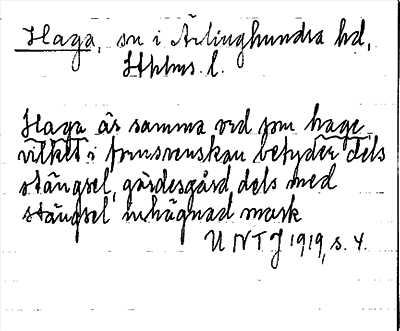 Haga, sn i Ärlinghundra hd,
Sthlms l.
Haga är samma ord som hage
vilket i fornsvenskan betyder dels
stängsel, gärdesgård, dels med
stängsel inhägnad mark
UNTJ 1919, s. 4.